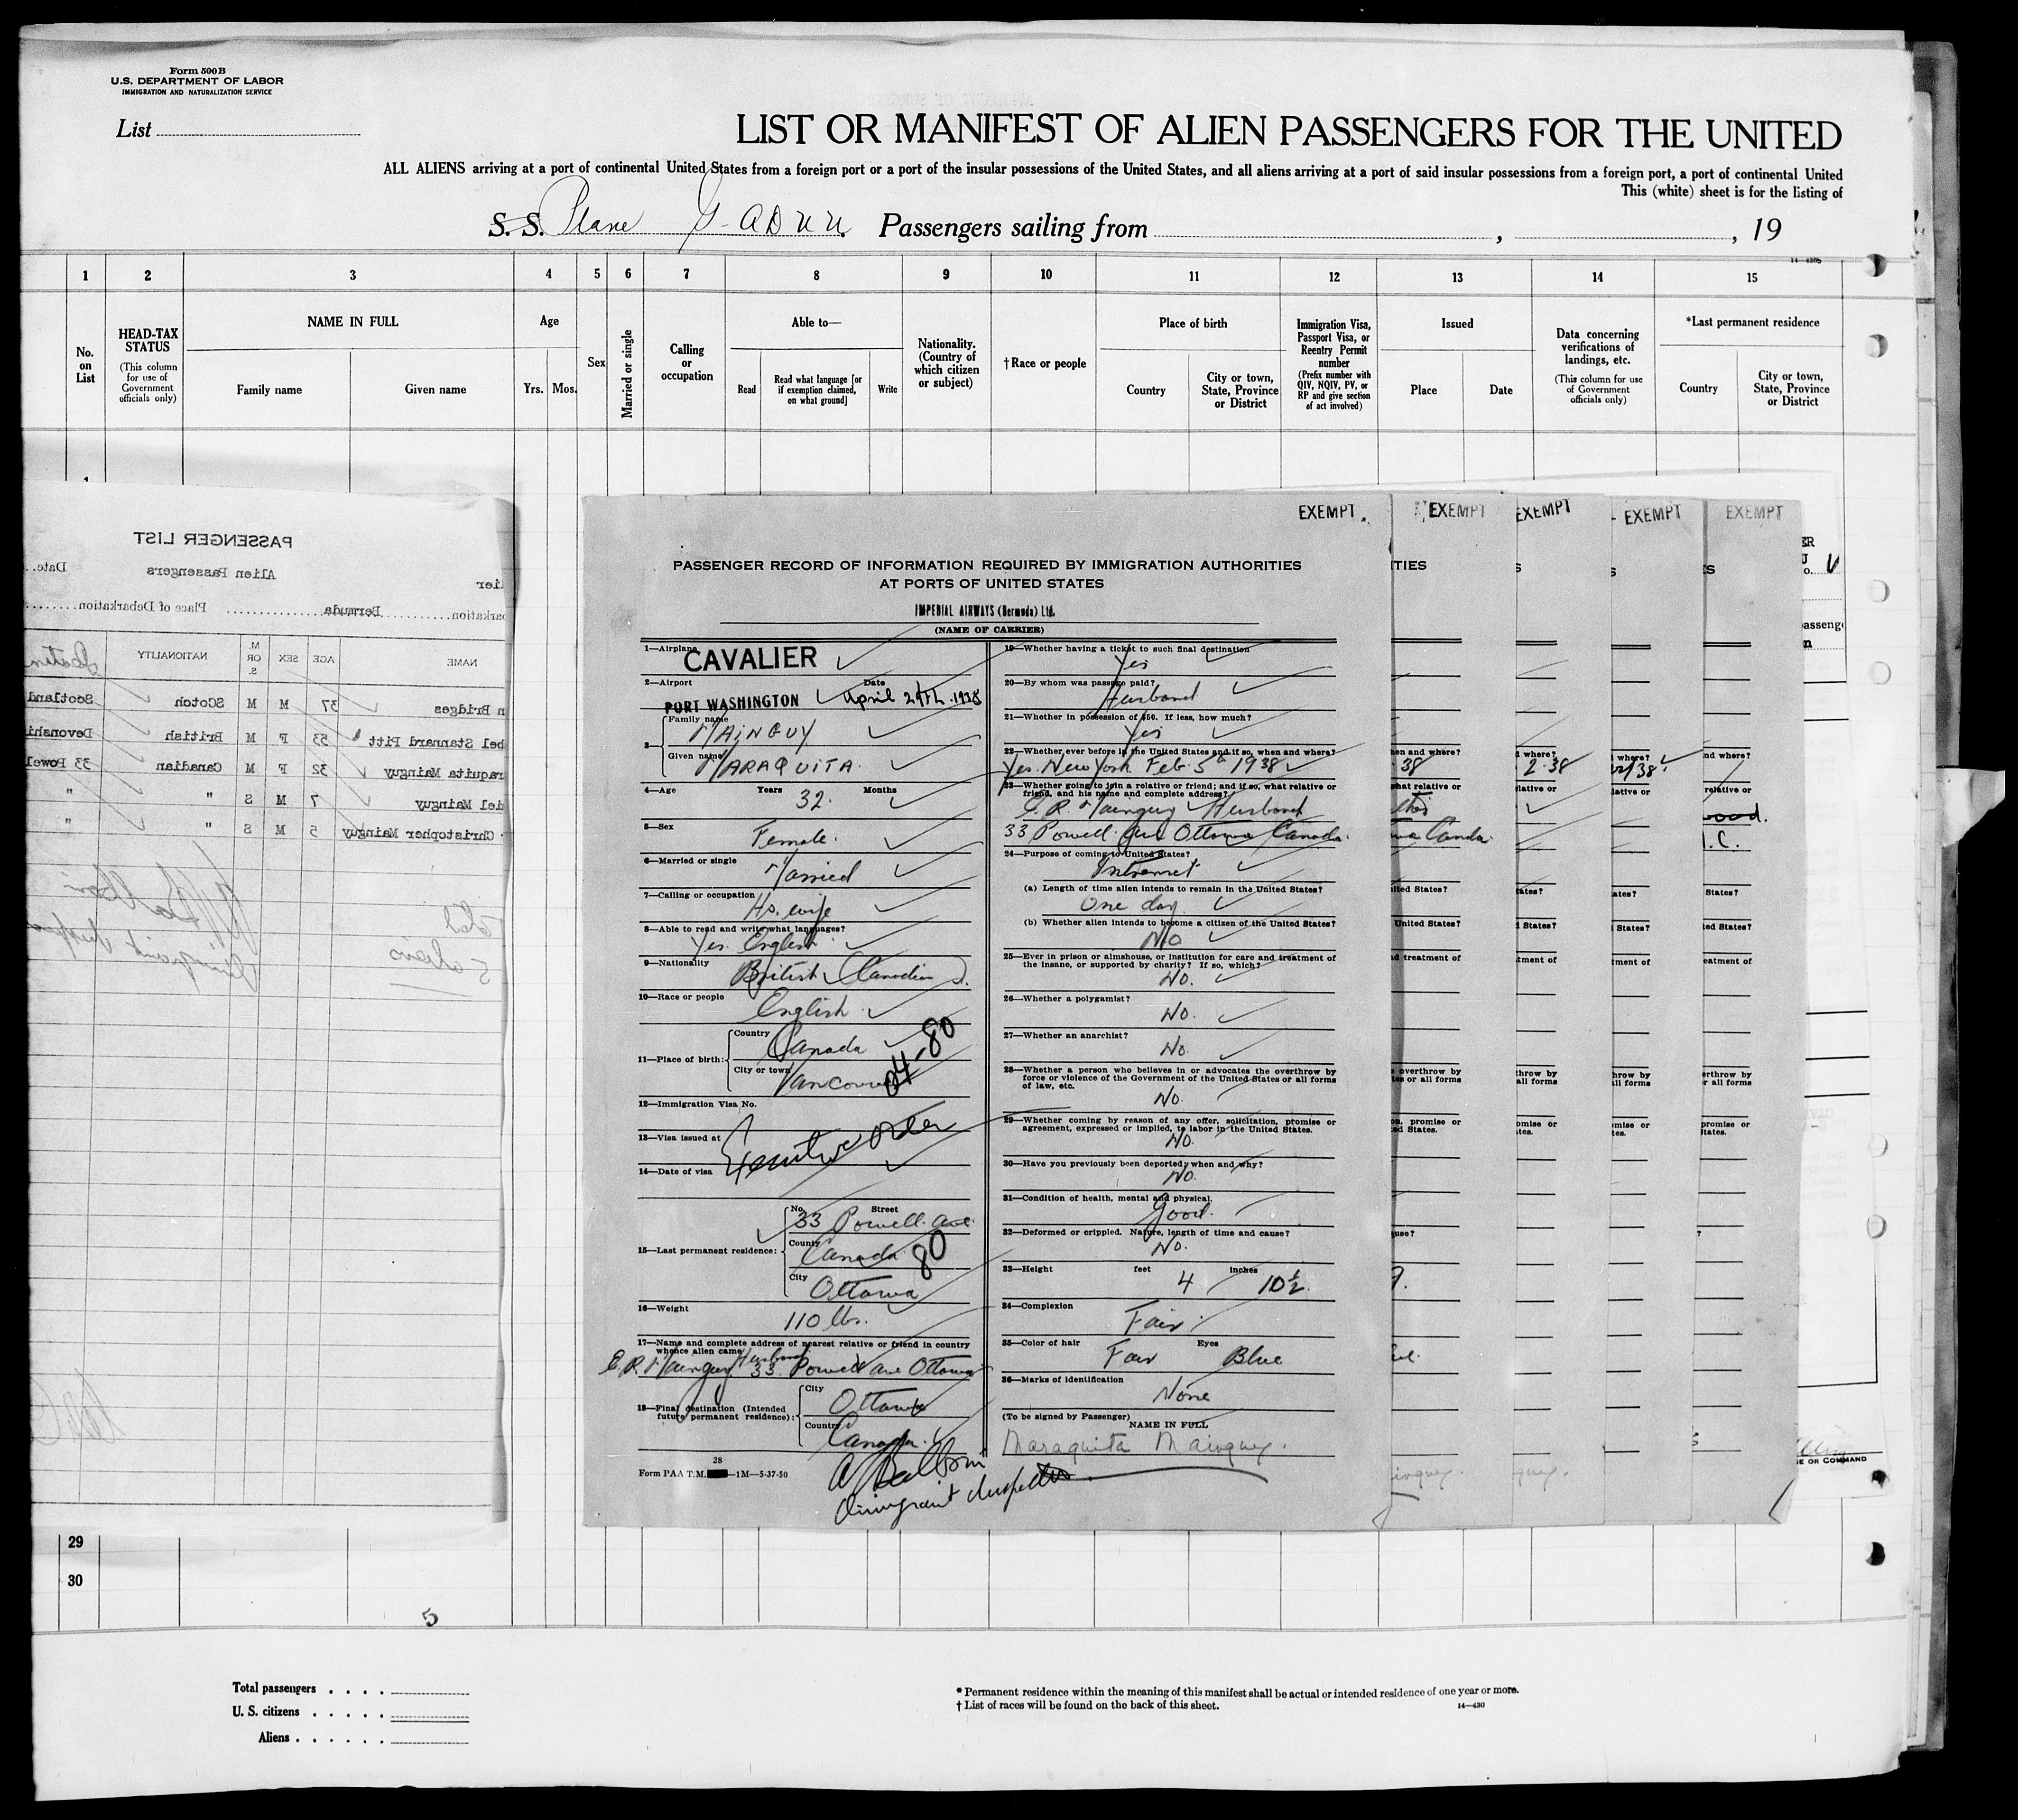 Form 500B
U.S. DEPARTMENT OF LABOR
IMMIGRATION AND NATURALIZATION SERVICE
List
LIST OR MANIFEST OF ALIEN PASSENGERS FOR THE UNITED
ALL ALIENS arriving at a port of continental United States from a foreign port or a port of the insular possessions of the United States, and all aliens arriving at a port of said insular possessions from a foreign port, a port of continental United
This (white) sheet is for the listing of
S. S. Plane G-ADUU. Passengers sailing from , , 19
14-430B
1 2 3 4 5 6 7 8 9 10 11 12 13 14 15
No. on List
HEAD-TAX STATUS
(This column for use of Government officials only)
NAME IN FULL
Family name
Given name
Age
Yrs. Mos.
Sex
Married or single
Calling or occupation
Able to—
Read
Read what language [or if exemption claimed, on what ground]
Write
Nationality. (Country of which citizen or subject)
†Race or people
Place of birth
Country
City or town, State, Province or District
Immigration Visa, Passport Visa, or Reentry Permit number
(Prefix number with QIV, NQIV, PV, or RP and give section of act involved)
Issued
Place
Date
Data concerning verifications of landings, etc.
(This column for use of Government officials only)
*Last permanent residence
Country
City or town, State, Province or District
PASSENGER LIST
Alien Passengers
Date
Bermuda Place of Debarkation
NAME AGE SEX M. OR S. NATIONALITY
n Bridges 37 M M Scotch Scotland
bel Stannard Pitt 53 F M British Devonshi
raquita Mainguy 32 F M Canadian 33 Powel
iel Mainguy 7 M S " "
Christopher Mainguy 5 M S " "
Total
5 aliens
EXEMPT EXEMPT EXEMPT EXEMPT EXEMPT
PASSENGER RECORD OF INFORMATION REQUIRED BY IMMIGRATION AUTHORITIES
AT PORTS OF UNITED STATES
IMPERIAL AIRWAYS (Bermuda) Ltd.
(NAME OF CARRIER)
1—Airplane
CAVALIER
2—Airport Date
PORT WASHINGTON April 29th. 1938
3—
Family name
MAINGUY
Given name
MARAQUITA.
4—Age Years Months
32.
5—Sex
Female.
6—Married or single
Married
7—Calling or occupation
Ho. wife
8—Able to read and write what languages?
Yes. English
9—Nationality
British (Canadian).
10—Race or people
English
11—Place of birth:
Country
Canada
City or town
Vancouver
04-80
12—Immigration Visa No.
13—Visa issued at
14—Date of visa
Executive Order
15—Last permanent residence:
No. Street
33 Powell. Ave.
County
Canada 80
City
Ottawa
16—Weight
110 lbs.
17—Name and complete address of nearest relative or friend in country whence alien came
E. R. Mainguy Husband 33. Powell ave Ottawa
18—Final destination (Intended future permanent residence):
City
Ottawa
Country
Canada.
28
Form PAA T.M. —1M—5-37-50
Immigrant Inspector
19—Whether having a ticket to such final destination
Yes
20—By whom was passage paid?
Husband
21—Whether in possession of $50. If less, how much?
Yes
22—Whether ever before in the United States and if so, when and where?
Yes. New York Feb. 5th 1938
23—Whether going to join a relative or friend; and if so, what relative or friend, and his name and complete address?
E. R. Mainguy Husband
33 Powell Ave Ottawa Canada.
24—Purpose of coming to United States?
Intransit
(a) Length of time alien intends to remain in the United States?
One day.
(b) Whether alien intends to become a citizen of the United States?
No
25—Ever in prison or almshouse, or institution for care and treatment of the insane, or supported by charity? If so, which?
No.
26—Whether a polygamist?
No.
27—Whether an anarchist?
No.
28—Whether a person who believes in or advocates the overthrow by force or violence of the Government of the United States or all forms of law, etc.
No.
29—Whether coming by reason of any offer, solicitation, promise or agreement, expressed or implied, to labor in the United States.
No.
30—Have you previously been deported; when and why?
No.
31—Condition of health, mental and physical.
Good.
32—Deformed or crippled. Nature, length of time and cause?
No.
33—Height feet inches
4 10½
34—Complexion
Fair
35—Color of hair Eyes
Fair Blue
36—Marks of identification
None
(To be signed by Passenger)
NAME IN FULL
Maraquita Mainguy.
29
30
5
Total passengers
U. S. citizens
Aliens
* Permanent residence within the meaning of this manifest shall be actual or intended residence of one year or more.
† List of races will be found on the back of this sheet.
14-430